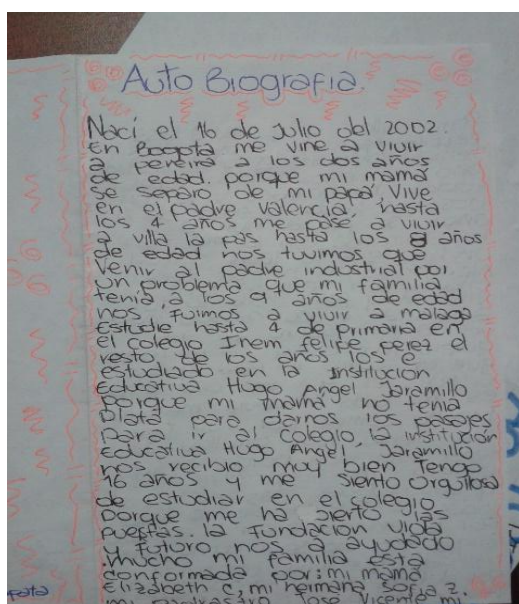 Auto Biografia.
Naci el 16 de Julio del 2002.
En Bogota me vine a vivir
a pereira a los dos años
de edad. porque mi mama
se separo de mi papá, Vive
en el padre valencia, hasta
los 4 años me pase a vivir
a villa la pas hasta los 8 años
de edad nos tuvimos que
venir al padre industrial por
un problema que mi familia
tenia, a los 9 años de edad
nos fuimos a vivir a malaga
Estudie hasta 4 de primaria en
el colegio Inem felipe perez el
resto de los años los e
estudiado en la institucion
Educativa Hugo Angel Jaramillo
porque mi mama no tenia
Plata para darnos los pasajes
para ir al colegio, la institución
Educativa Hugo Angel, Jaramillo
nos recibio muy bien Tengo
16 años y me siento orgullosa
de estudiar en el colegio
porque me ha abierto las
puertas. la fundacion vida
y futuro nos a ayudado
mucho mi familia esta
conformada por: mi mama
Elizabeth C, mi hermana Sofia Z.
mi padrastro Jose Vicente mi